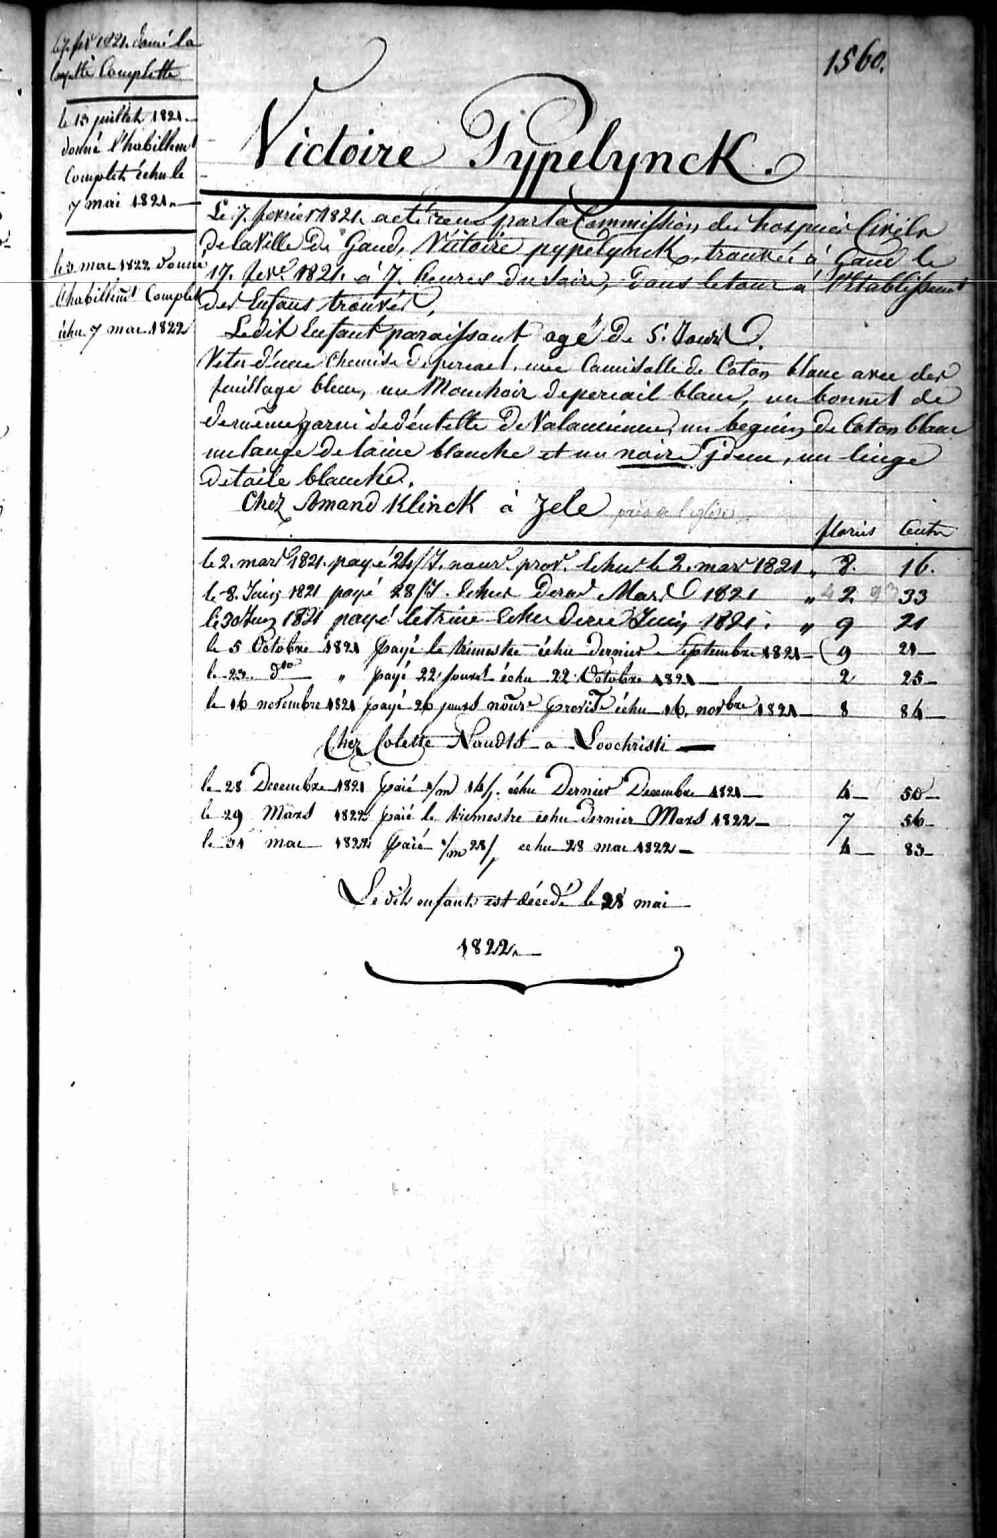 1560.
le 7. fevr 1821. donné la
layette Complette
le 13 juillet 1821.
donné l'habillemt
Complet échu le
7 mai 1821.
le 3 mai 1822 donné
l'habillemt Complet
échu 7 mai 1822
Victoire Pypelynck.
Le 7. fevrier 1821. a été reçu par la Commission des hospices Civils
de la Ville de Gand, Victoire pypelynck, trouvée à Gand le
fevr. 1821. a 7. heures du soire, dans le tour à l'Etablissement
des Enfans trouvés,
Ledit Enfant paraissant agé De 5. Jours.
Vetu d'une Chemise de percael, une Camisolle de Coton blanc avec des
feuillage bleu, un Mouchoir de percail blanc, un bonnet de
de meme garni de déntelle De Valancienne, un beguin de Coton blanc
un lange de laine blanche et un noire Idem, un linge
de toile blanche.
Chez Amand Klinck à Zele près de l'église
florins Cents
le 2. mars 1821. payé 24/J. nour. prov. Echu le 2. mars 1821 „ 8. 16.
le 8. Juin 1821 payé 28/J. Echus Dernr Mars 1821 „ 2. 33
le 30 Juin 1821 payé le trime Echu dernr Juin 1821. „ 9 21
le 5 Octobre 1821 payé le trimestre échu dernier Septembre 1821 9 21
le 23. do „ payé 22 jours échu 22 Octobre 1821 2 25
le 16 novembre 1821 payé 26 jours nourre provisre échu 16. novbre 1821 8 84
Chez Colette Naudts a Loochristi
le 28 Decembre 1821 paié s/m 14/j. échu Dernier Decembre 1821 4 50
le 29 Mars 1822 paié le trimestre échu dernier Mars 1822 7 56
le 31 mai 1822 paié s/m 28/j echu 28 mai 1822 4 83
Le dit enfant est décédé le 28 mai
1822.